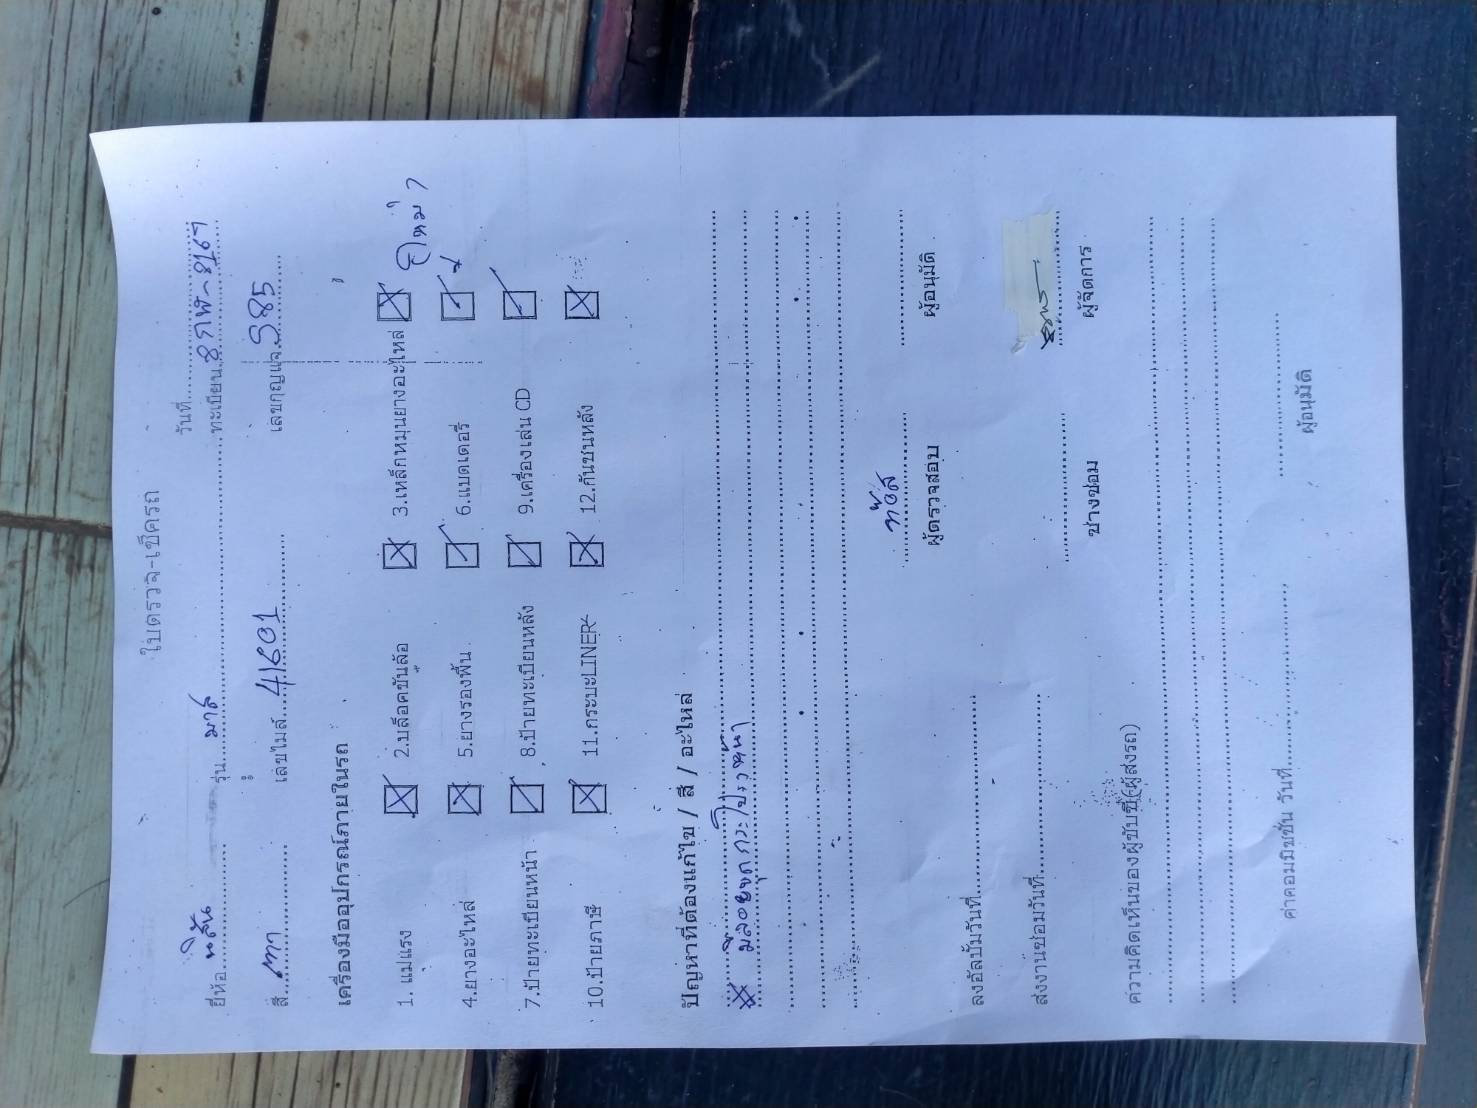 ใบตรวจ-เช็ครถ
วันที่
ยี่ห้อ นิสัน รุ่น มาส์ ทะเบียน 8กฬ-8167
สี เทา เลขไมล์ 41601 เลขกุญแจ 985
เครื่องมืออุปกรณ์ภายในรถ
1. แม่แรง 2.บล็อคขันล้อ 3.เหล็กหมุนยางอะไหล่
4.ยางอะไหล่ 5.ยางรองพื้น 6.แบตเตอรี่
7.ป้ายทะเบียนหน้า 8.ป้ายทะเบียนหลัง 9.เครื่องเล่น CD
10.ป้ายภาษี 11.กระบะLINER 12.กันชนหลัง
ปัญหาที่ต้องแก้ไข / สี / อะไหล่
มีลอยขูดกระโปรงหน้า
ท้อส
ผู้ตรวจสอบ ผู้อนุมัติ
ลงอัลบั้มวันที่
ส่งงานซ่อมวันที่
ช่างซ่อม ผู้จัดการ
ความคิดเห็นของผู้ขับขี่(ผู้ส่งรถ)
ค่าคอมมิชชั่น วันที่
ผู้อนุมัติ